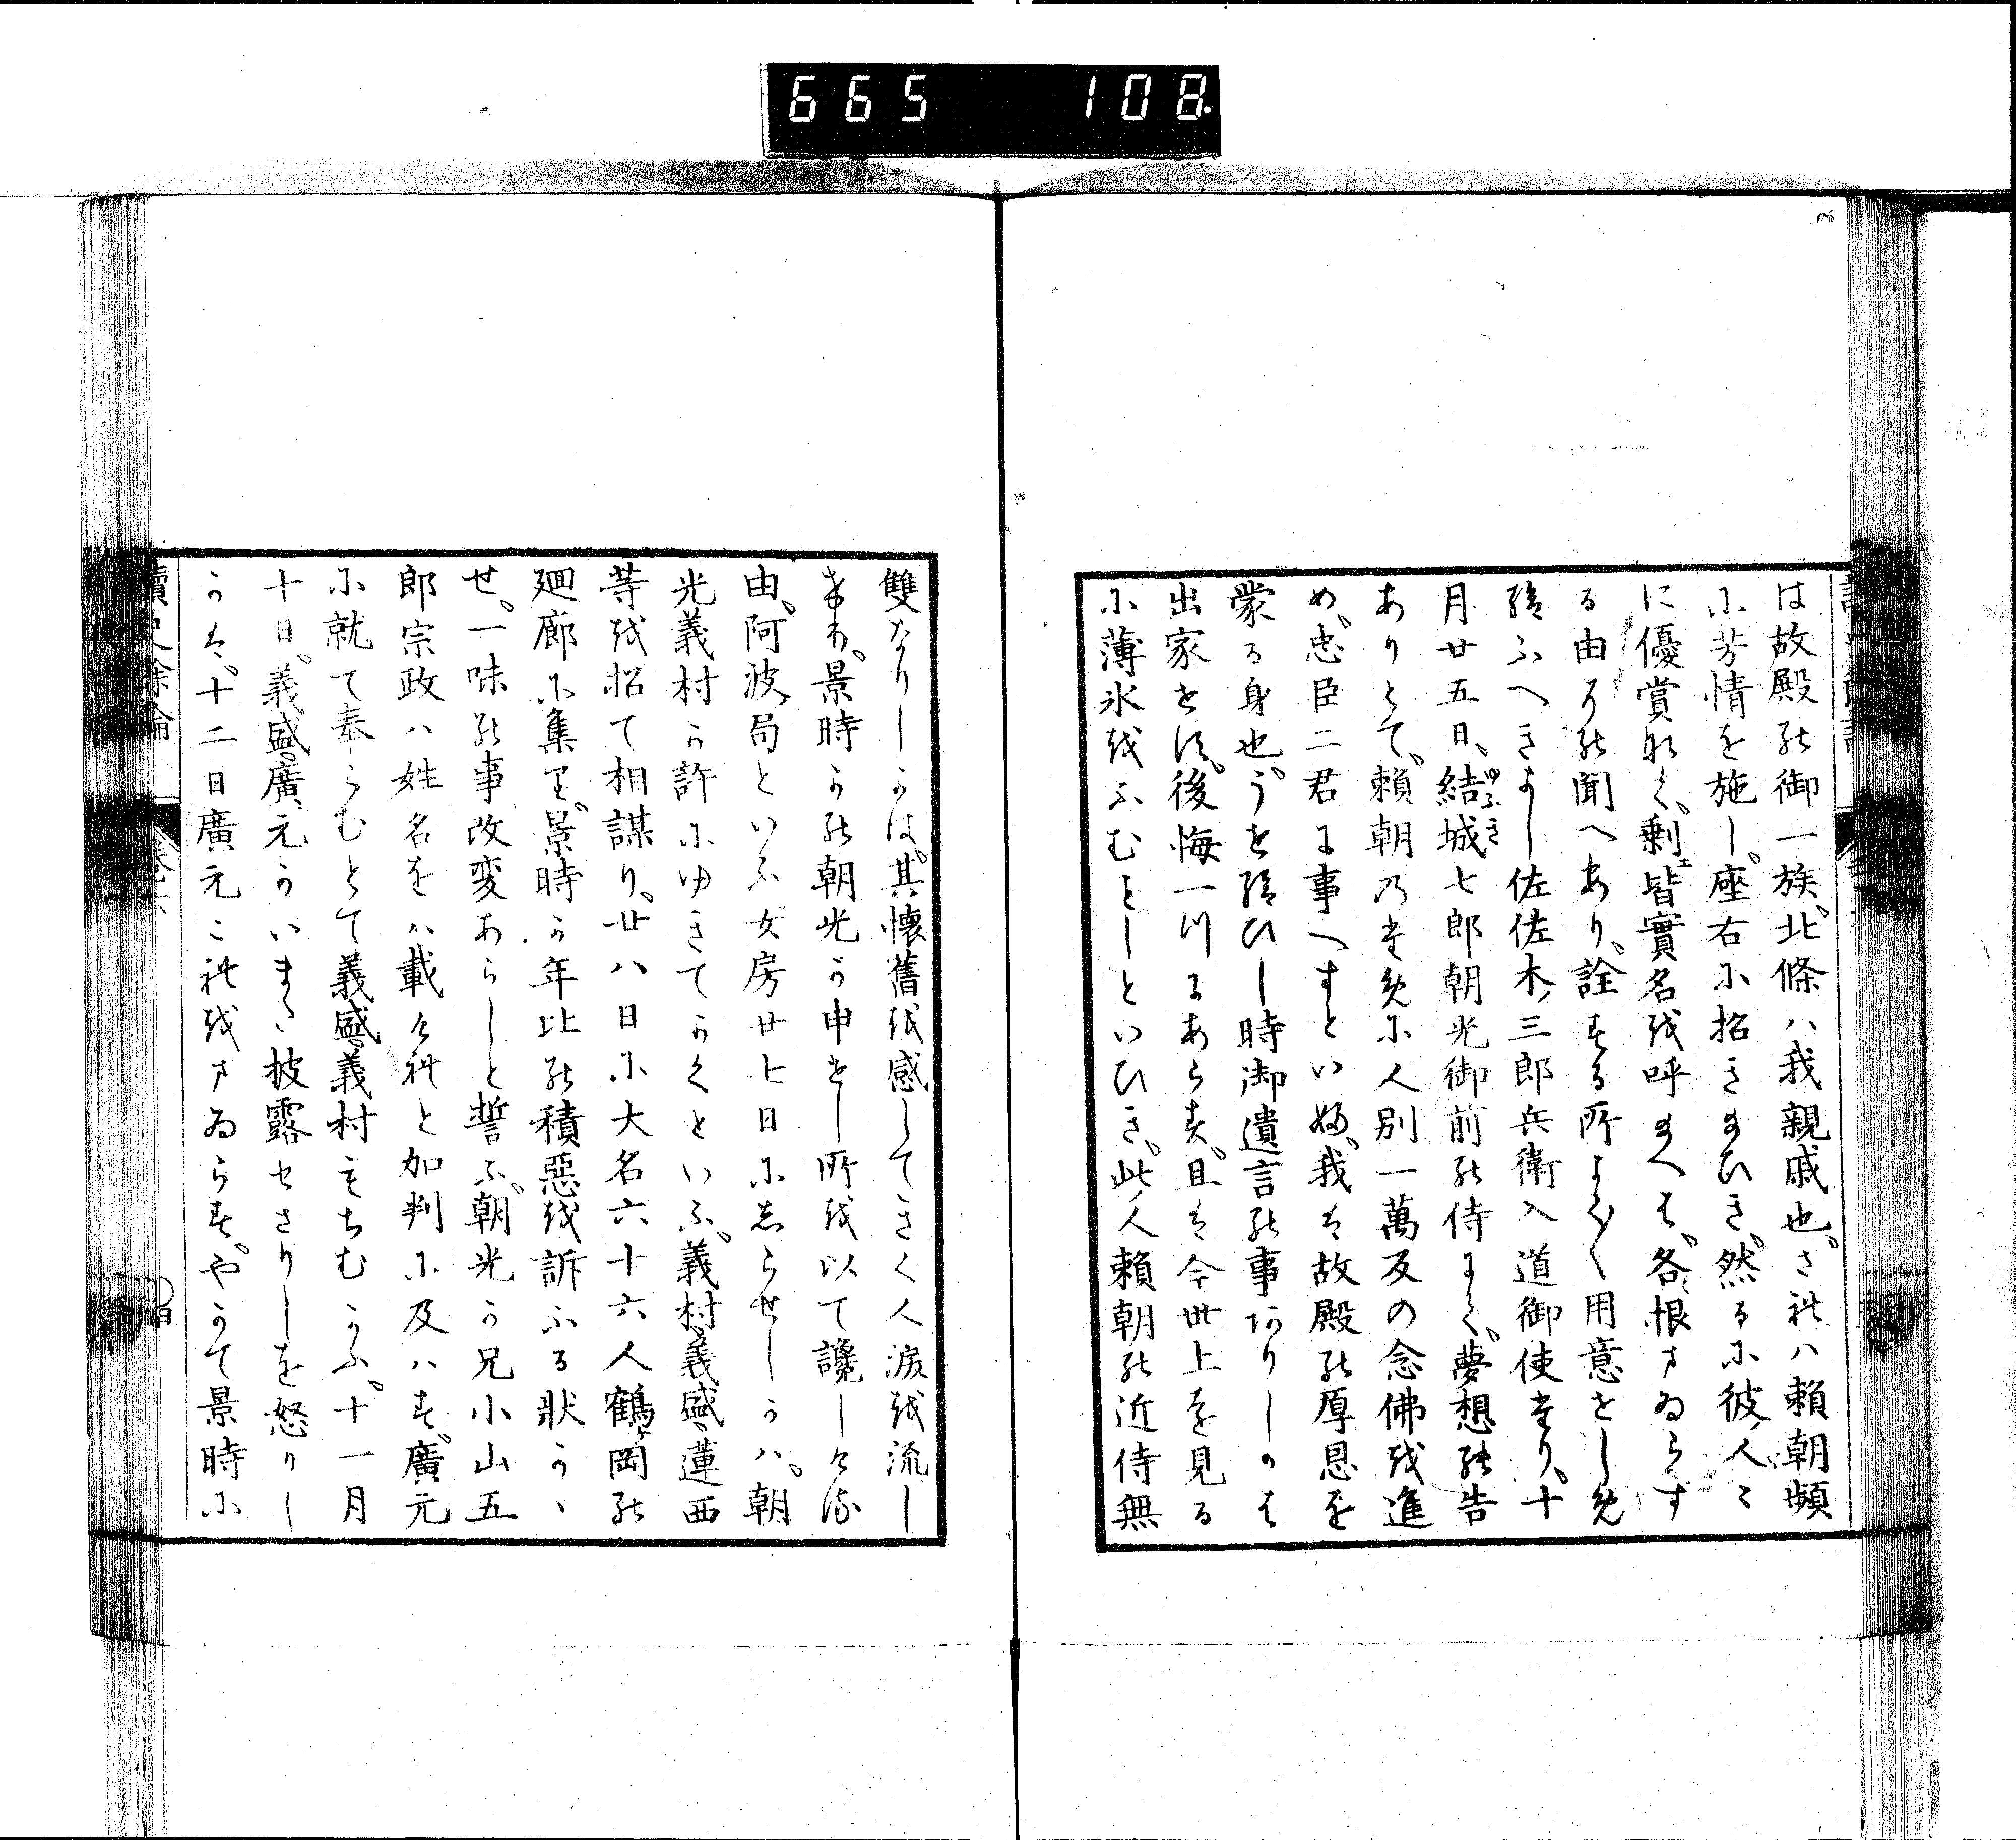 665 108
は故殿の御一族、北條ハ我親戚也、されハ賴朝頻
に芳情を施し、座右に招きまひき、然るに彼ノ人〻
に優賞なく、剩ェ皆實名を呼まへは、各〻恨まゐらす
る由其の聞へあり、詮する所よく〱用意をしめ
給ふへきよし佐佐木ノ三郎兵衛入道御使たり、十
月廿五日、結城七郎朝光御前の侍にて、夢想の告
ゆふき
ありとて、賴朝乃ために人別一萬反の念佛を進
め、忠臣二君に事へすといへり、我は故殿の厚恩を
蒙る身也、うせ給ひし時御遺言の事ありしのは
出家せす、後悔一つにあらす、且は今世上を見る
に薄氷をふむましといひき、此ノ人賴朝の近侍無
雙なりしかは、其懷舊を感してきく人淚を流し
景時かの朝光か申せし所を以て讒しける
由、阿波局といふ女房廿七日にしらせしかハ、朝
光義村か許にゆきてかくといふ、義村、義盛、蓮西
等を招て相謀り、廿八日に大名六十六人鶴岡の
廻廊に集り、景時か年比の積惡を訴ふる狀かゝ
せ、一味の事改変あらしと誓ふ、朝光か兄小山五
郎宗政ハ姓名をハ載けれと加判に及ハす、廣元
に就て奉らむとて義盛、義村もちむかふ、十一月
十日、義盛、廣元かいまた披露せさりしを怒りし
かは、十二日廣元これをまゐらす、やかて景時に
讀史餘論